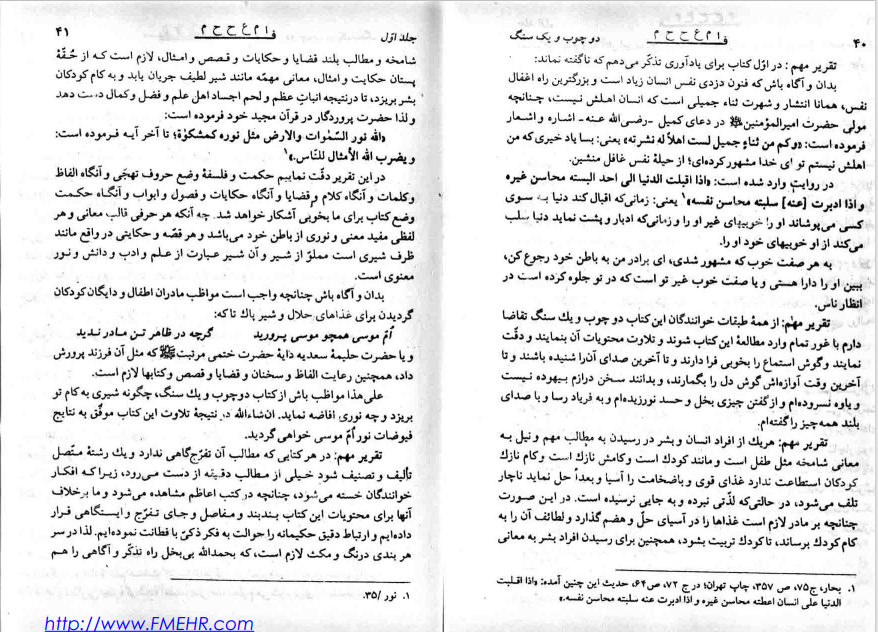 ۴۰
ف ا م ع ح ح م
دو چوب و یک سنگ
تقریر مهم: در اوّل کتاب برای یادآوری تذکّر می‌دهم که ناگفته نماند:
بدان و آگاه باش که فنون دزدی نفس انسان زیاد است و بزرگترین راه اغفال
نفس، همانا انتشار و شهرت ثناء جمیلی است که انسان اهلش نیست، چنانچه
مولی حضرت امیرالمؤمنین در دعای کمیل -رضی‌الله عنه- اشاره و اشعار
فرموده است: «وکم من ثناءٍ جمیل لست اهلاً له نشرته» یعنی: بسا یاد خیری که من
اهلش نیستم تو ای خدا مشهور کرده‌ای؛ از حیلهٔ نفس غافل منشین.
در روایتِ وارد شده است: «اذا اقبلت الدنیا الی احد البسته محاسن غیره
و اذا ادبرت [عنه] سلبته محاسن نفسه»۱ یعنی: زمانی‌که اقبال کند دنیا به سوی
کسی می‌پوشاند او را خوبیهای غیر او را و زمانی‌که ادبار و پشت نماید دنیا سلب
می‌کند از او خوبیهای خود او را.
به هر صفت خوب که مشهور شدی، ای برادر من به باطن خود رجوع کن،
ببین او را دارا هستی و یا صفت خوب غیر تو است که در تو جلوه کرده است در
انظار ناس.
تقریر مهم: از همهٔ طبقات خوانندگان این کتاب دو چوب و یک سنگ تقاضا
دارم با غور تمام وارد مطالعهٔ این کتاب شوند و تلاوت محتویات آن بنمایند و دقّت
نمایند و گوش استماع را بخوبی فرا دارند و تا آخرین صدای آن‌را شنیده باشند و تا
آخرین وقت آوازه‌اش گوش دل را بگمارند، و بدانند سخن درازم بیهوده نیست
و یاوه نسروده‌ام و از گفتن چیزی بخل و حسد نورزیده‌ام و به فریاد رسا و با صدای
بلند همه‌چیز را گفته‌ام.
تقریر مهم: هریك از افراد انسان و بشر در رسیدن به مطالب مهم و نیل به
معانی شامخه مثل طفل است و مانند کودك است و کامش نازك است و کام نازك
کودکان استطاعت ندارد غذای قوی و باضخامت را آسیا و بعداً حل نماید ناچار
تلف می‌شود، در حالتی‌که لذّتی نبرده و به جایی نرسیده است. در این صورت
چنانچه بر مادر لازم است غذاها را در آسیای حلّ و هضم گذارد و لطائف آن را به
کام کودك برساند، تا کودك تربیت بشود، همچنین برای رسیدن افراد بشر به معانی
۱. بحار، ج۷۵، ص ۳۵۷، چاپ تهران؛ در ج ۷۲، ص۶۴، حدیث این چنین آمده: «اذا اقبلت
الدنیا علی انسان اعطته محاسن غیره و اذا ادبرت عنه سلبته محاسن نفسه.»
جلد اوّل
ف ا م ع ح ح م
۴۱
شامخه و مطالب بلند قضایا و حکایات و قصص و امثال، لازم است که از حُقّهٔ
پستان حکایت و امثال، معانی مهمّه مانند شیر لطیف جریان یابد و به کام کودکان
بشر بریزد، تا درنتیجه انبات عظم و لحم اجساد اهل علم و فضل و کمال دست دهد
و لذا حضرت پروردگار در قرآن مجید خود فرموده است:
«الله نور السّموات والارض مثل نوره کمشکوٰة» تا آخر آیه فرموده است:
و یضرب الله الأمثال للنّاس.»۱
در این تقریر دقّت نماییم حکمت و فلسفهٔ وضع حروف تهجّی و آنگاه الفاظ
وکلمات و آنگاه کلام و قضایا و آنگاه حکایات و فصول و ابواب و آنگاه حکمت
وضع کتاب برای ما بخوبی آشکار خواهد شد. چه آنکه هر حرفی قالب معانی و هر
لفظی مفید معنی و نوری از باطن خود می‌باشد و هر قصّه و حکایتی در واقع مانند
ظرف شیری است مملوّ از شیر و آن شیر عبارت از علم و ادب و دانش و نور
معنوی است.
بدان و آگاه باش چنانچه واجب است مواظب مادران اطفال و دایگان کودکان
گردیدن برای غذاهای حلال و شیر پاك تا که:
اُمّ موسی همچو موسی پرورید گرچه در ظاهر تن مادر ندید
و یا حضرت حلیمهٔ سعدیه دایهٔ حضرت ختمی مرتبت که مثل آن فرزند پرورش
داد، همچنین رعایت الفاظ و سخنان و قضایا و قصص وکتابها لازم است.
علی‌هذا مواظب باش از کتاب دوچوب و یک سنگ، چگونه شیری به کام تو
بریزد و چه نوری افاضه نماید. ان‌شاءالله در نتیجهٔ تلاوت این کتاب موفّق به نتایج
فیوضات نور اُمّ موسی خواهی گردید.
تقریر مهم: در هر کتابی که مطالب آن تفرّج‌گاهی ندارد و یك رشتهٔ متّصل
تألیف و تصنیف شود خیلی از مطالب دقیقه از دست می‌رود، زیرا که افکار
خوانندگان خسته می‌شود، چنانچه در کتب اعاظم مشاهده می‌شود و ما برخلاف
آنها برای محتویات این کتاب بندبند و مفاصل و جای تفرّج و ایستگاهی قرار
داده‌ایم و ارتباط دقیق حکیمانه را حوالت به فکر ذکیّ با فطانت نموده‌ایم. لذا در سر
هر بندی درنگ و مکث لازم است، که بحمدالله بی‌بخل راه تذکّر و آگاهی را هم
۱. نور /۳۵.
http://www.FMEHR.com